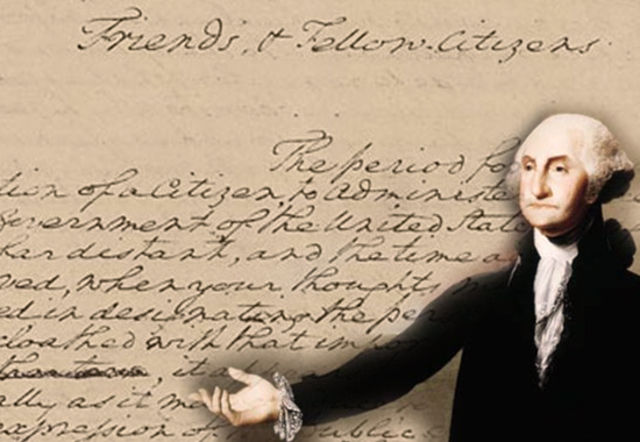 Friends, & Fellow-Citizens
The period fo
tion of a Citizen, to Administe
Government of the United State
far distant, and the time a
ved, when your thoughts m
ed in designating the per
cloathed with that impor
it ap
ally as it ma
expression of public